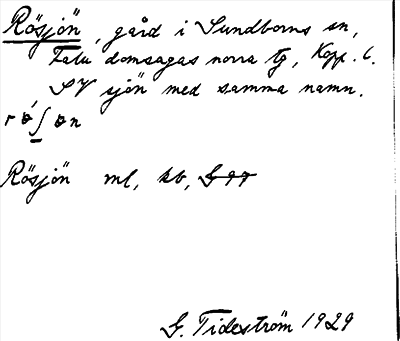 Rösjön, gård i Sundborns sn,
Falu domsagas norra tg, Kopp. l.
SV sjön med samma namn.
Rösjön ml, kb,
G. Tideström 1929